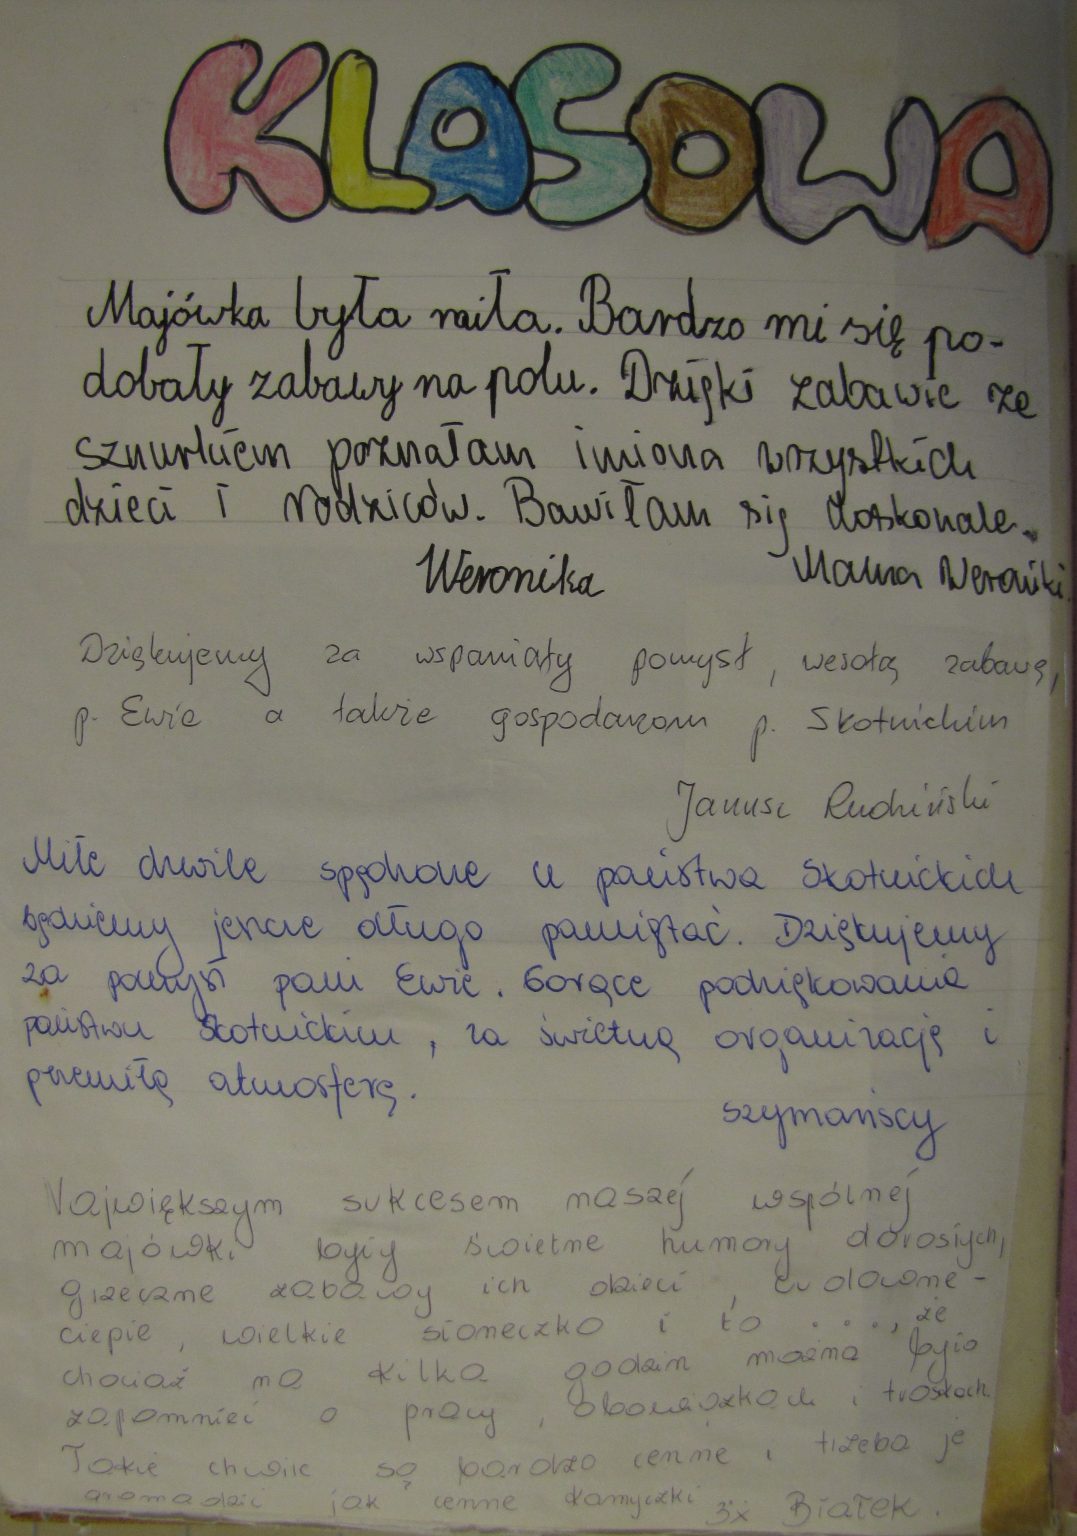 KLASOWA
Majówka była miła. Bardzo mi się po-
dobały zabawy na polu. Dzięki zabawie ze
sznurkiem poznałam imiona wszystkich
dzieci i rodziców. Bawiłam się doskonale.
Weronika Mama Weroniki
Dziękujemy za wspaniały pomysł, wesołą zabawę,
p. Ewie a także gospodarzom p. Skotnickim
Janusz Rudziński
Miłe chwile spędzone u państwa Skotnickich
będziemy jeszcze długo pamiętać. Dziękujemy
za pomysł pani Ewie. Gorące podziękowania
państwu Skotnickim, za świetną organizację i
przemiłą atmosferę.
Szymańscy
Największym sukcesem naszej wspólnej
majówki były świetne humory dorosłych,
grzeczne zabawy ich dzieci, cudowne-
ciepłe, wielkie słoneczko i to ...., że
chociaż na kilka godzin można było
zapomnieć o pracy, obowiązkach i troskach.
Takie chwile są bardzo cenne i trzeba je
gromadzić jak cenne kamyczki 3x Białek.